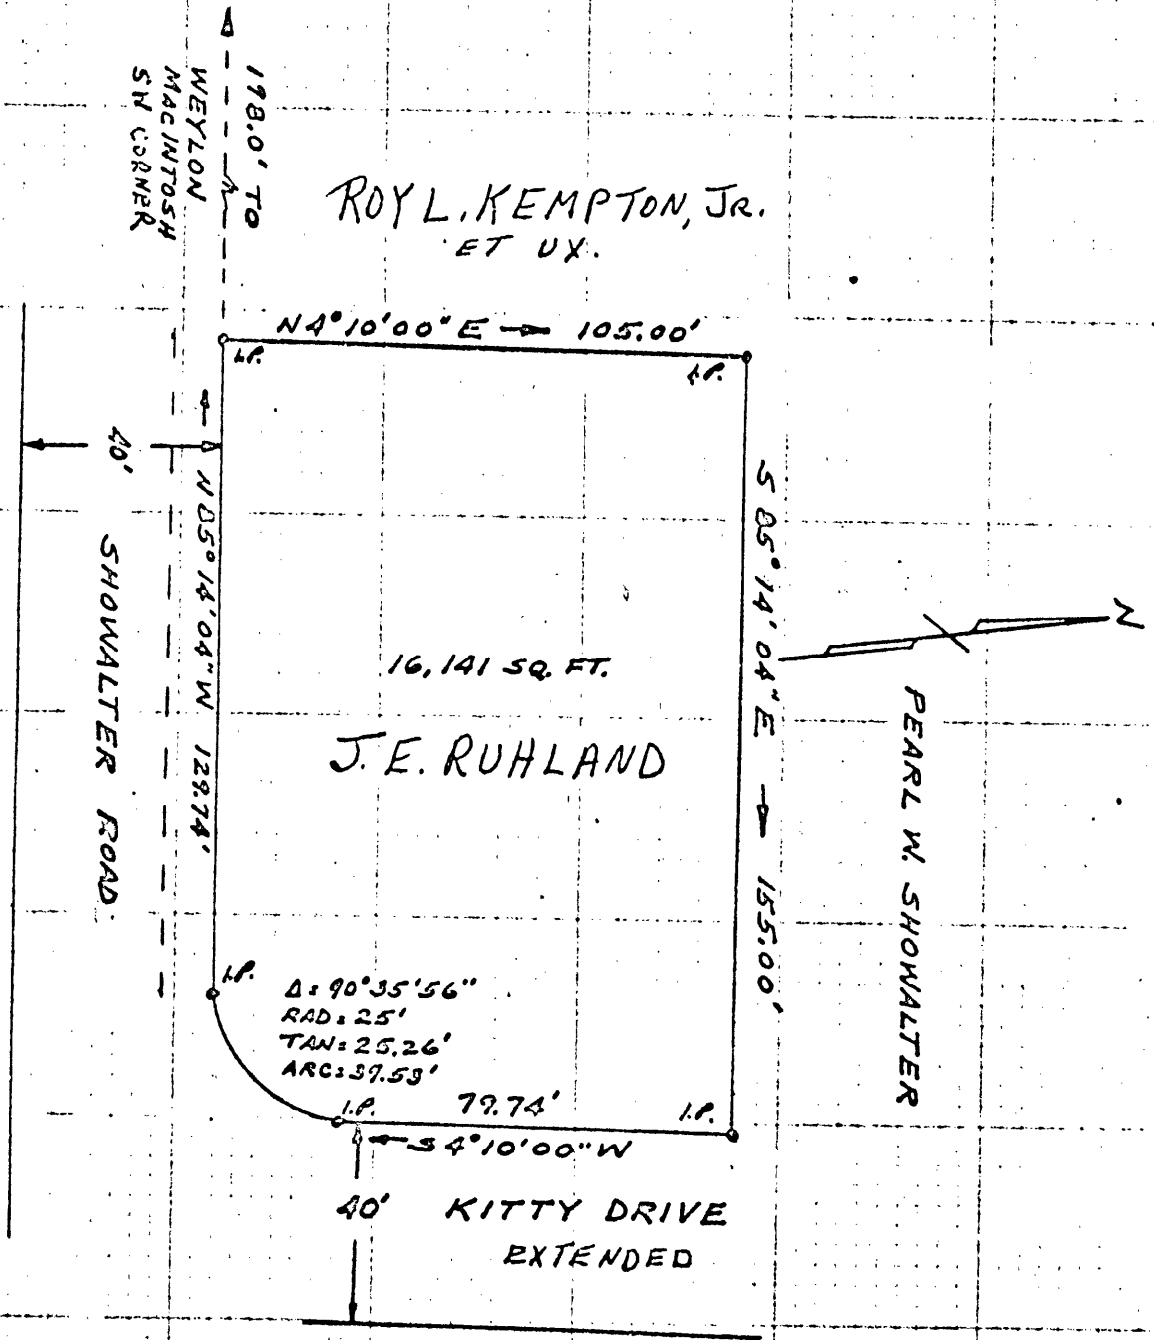 198.0' TO
WEYLON
MACINTOSH
SW CORNER
ROY L. KEMPTON, JR.
ET UX.
N 4° 10' 00" E → 105.00'
I.P.
I.P.
40'
SHOWALTER ROAD
N 85° 14' 04" W 129.74'
S 85° 14' 04" E → 155.00'
N
PEARL W. SHOWALTER
16,141 SQ. FT.
J. E. RUHLAND
I.P.
Δ = 90° 35' 56"
RAD = 25'
TAN = 25.26'
ARC = 39.53'
I.P.
79.74'
I.P.
S 4° 10' 00" W
40' KITTY DRIVE
EXTENDED